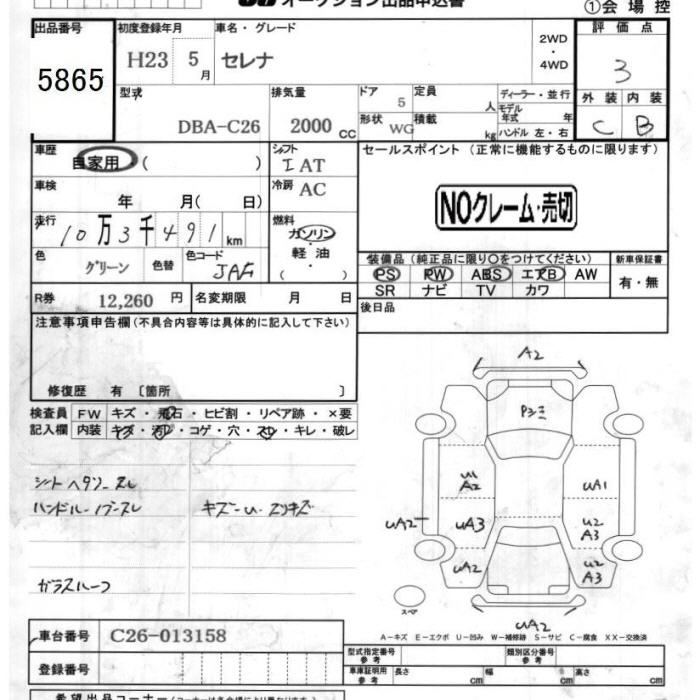 オークション出品申込書
①会場控
出品番号
5865
初度登録年月
H23 5月
車名・グレード
セレナ
2WD
・
4WD
評価点
3
外装 内装
C B
型式
DBA-C26
排気量
2000 cc
ドア
5
形状 WG
定員
人
積載
kg
ディーラー・並行
モデル年式 年
ハンドル 左・右
車歴
自家用 ( )
シフト
I AT
冷房 AC
車検
年 月( 日)
走行
10万3千491 km
燃料
ガソリン
・
軽油
( )
色
グリーン
色替
色コード
JAG
R券 12,260 円
名変期限 月 日
セールスポイント (正常に機能するものに限ります)
NOクレーム・売切
装備品 (純正品に限り○をつけてください)
PS PW ABS エアB AW
SR ナビ TV カワ
新車保証書
有・無
後日品
注意事項申告欄 (不具合内容等は具体的に記入して下さい)
修復歴 有 〔箇所 〕
検査員
記入欄
FW キズ・飛石・ヒビ割・リペア跡・×要
内装 キズ・汚レ・コゲ・穴・スレ・キレ・破レ
シートヘタリ・スレ
ハンドル・ノブ・スレ
キズ・u・スリキズ
ガラスルーフ
A2
P3ミ
u1
A2
uA1
uA2
uA3
u2
A3
uA2
u2
A3
スペア
uA2
A−キズ E−エクボ U−凹み W−補修跡 S−サビ C−腐食 XX−交換済
車台番号 C26-013158
登録番号
型式指定番号
参考
類別区分番号
参考
車庫証明用
参考
長さ cm
幅 cm
高さ cm
希望出品コーナー